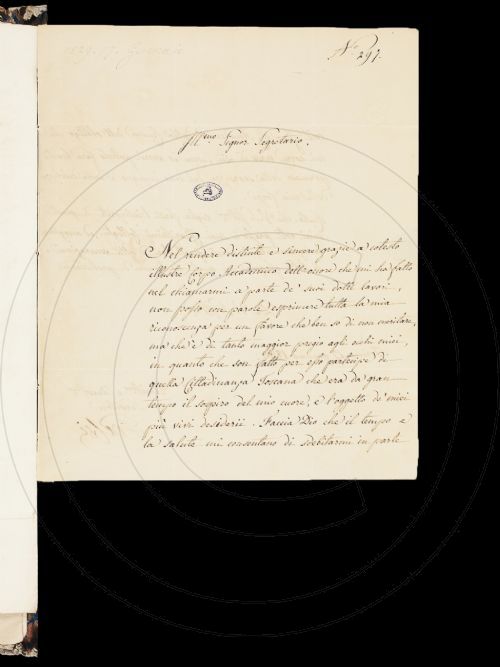 N.o 297.
Ill.mo Signor Segretario.
Nel rendere distinte e sincere grazie a codesto
illustre Corpo Accademico dell'onore che mi ha fatto
nel chiamarmi a parte de' suoi dotti lavori,
non posso con parole esprimere tutta la mia
riconoscenza per un favore che ben so di non meritare,
ma che è di tanto maggior pregio agli occhi miei,
in quanto che son fatto per esso partecipe di
quella Cittadinanza Toscana che era da gran
tempo il sospiro del mio cuore, e l'oggetto de' miei
più vivi desiderii. Faccia Dio che il tempo e
la salute mi consentano di sdebitarmi in parte